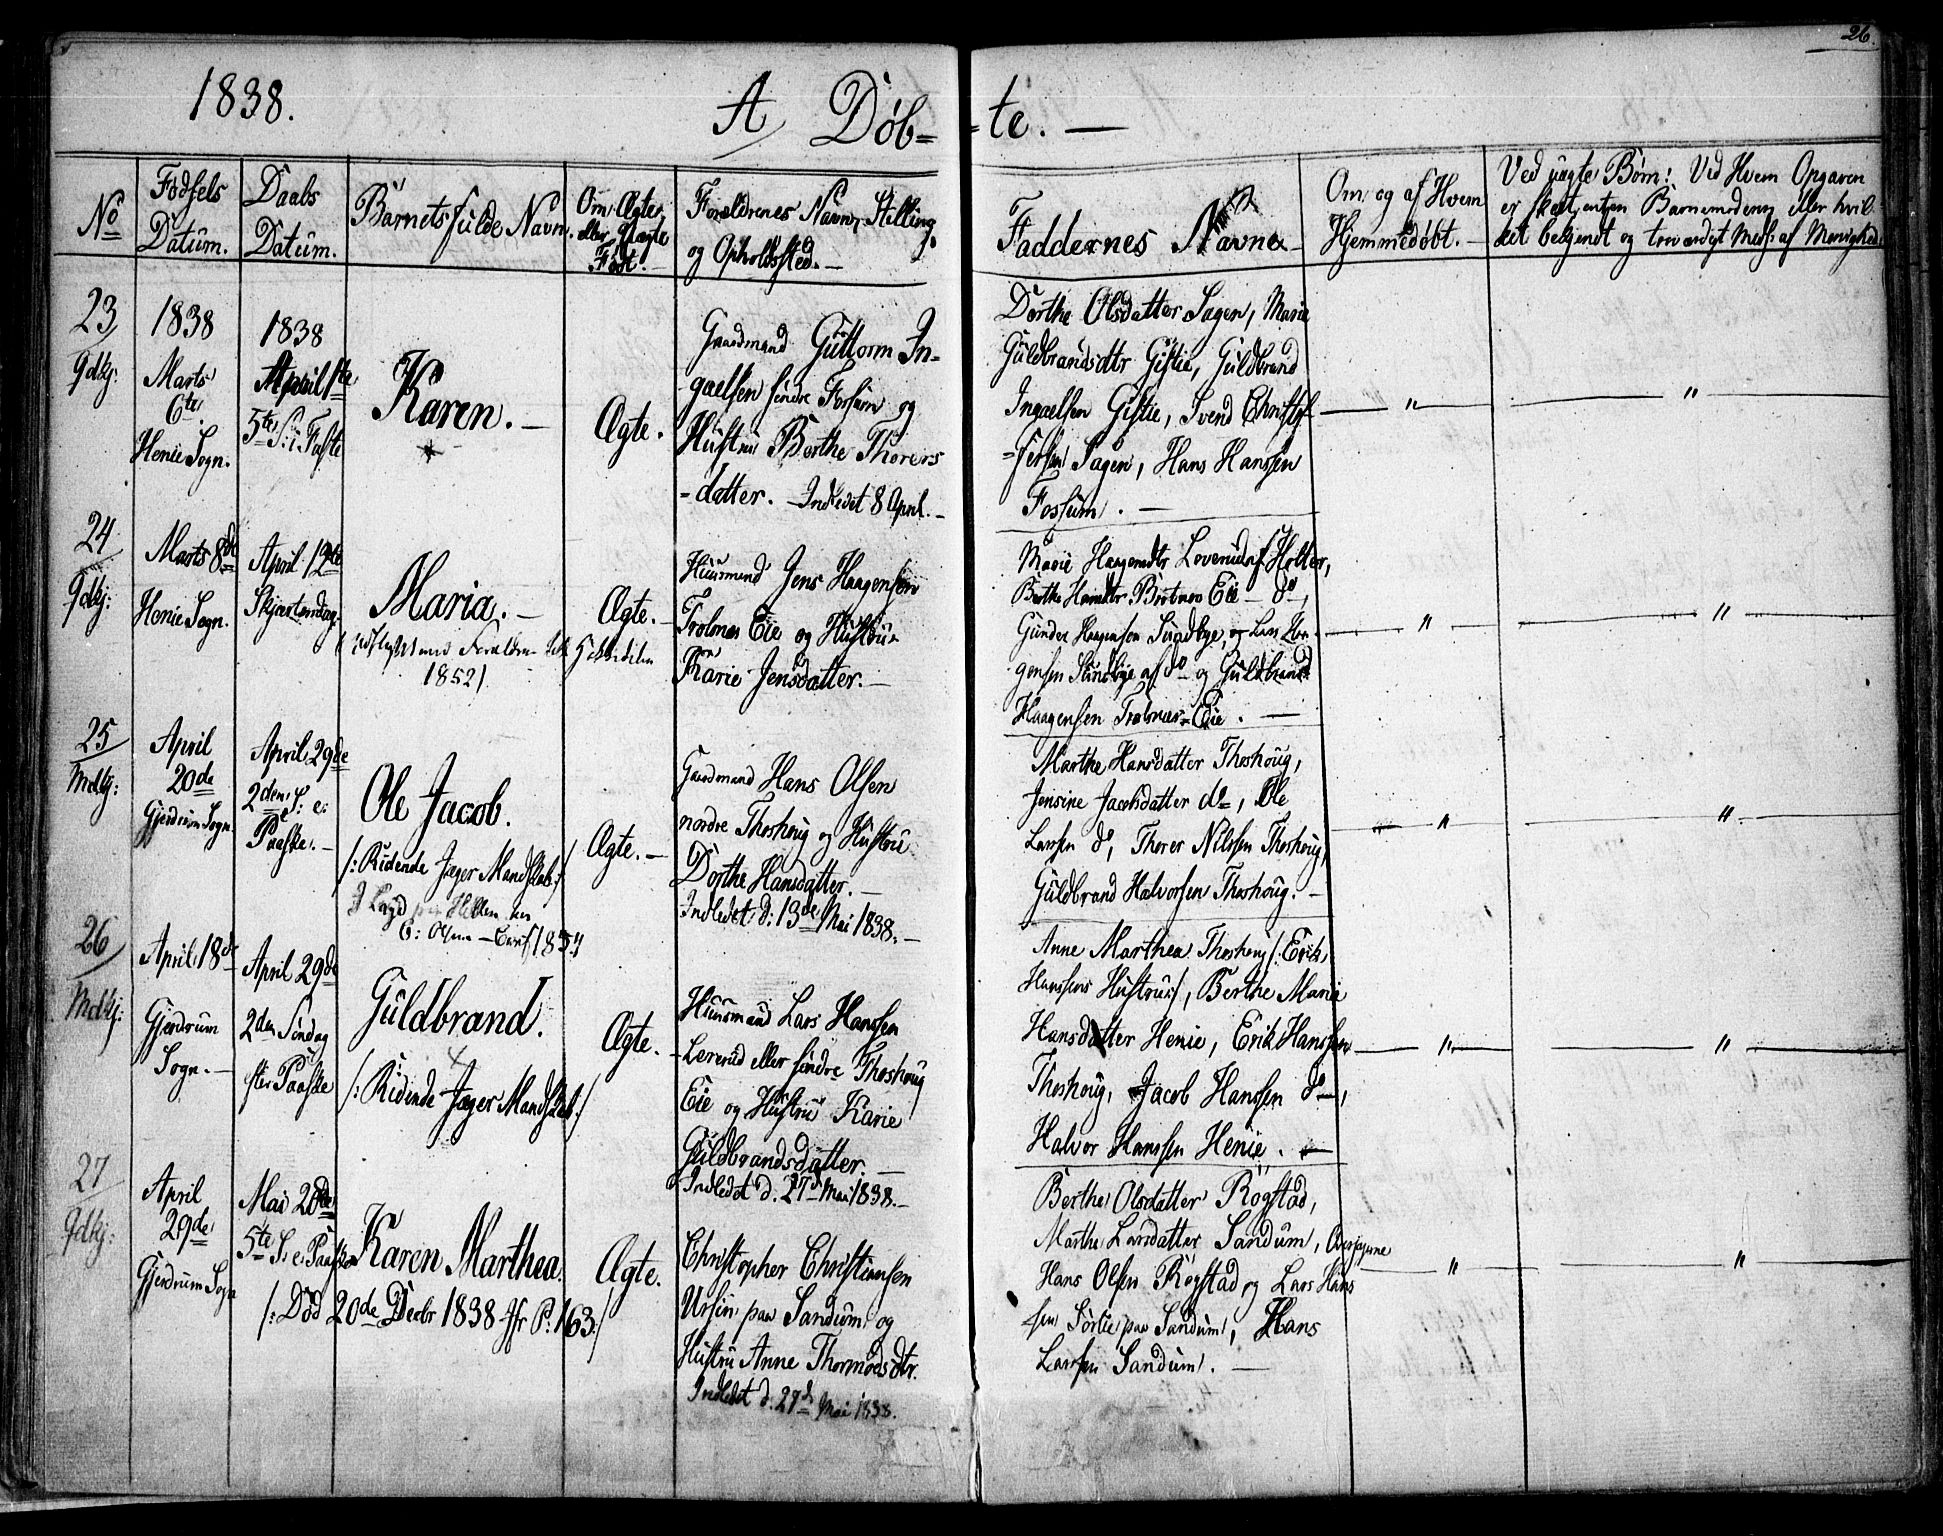 26.
1838.
A Döb=
=te. —
No
Fødsels
Datum.
Daabs
Datum.
Barnets fulde Navn.
Om Ægte
eller Uægte
Født. —
Forældrenes Navn, Stilling,
og Opholdssted. —
Faddernes Navne —
Om og af Hvem
Hjemmedöbt. —
Ved uægte Børn: Ved Hvem Opgaven
er skeet, enten Barnemoderen eller hvil-
ket bekjendt og troværdigt Medl: af Menighed.
23
Gdkj:
1838
Marts
6te
Henie Sogn.
1838
April 1ste
5te S: i Faste
Karen. —
Ægte.
Gaardmand Guttorm In-
gaelsen søndre Fossum og
Hustru Berthe Thorers
-datter. — Indledet 8 April. —
Dorthe Olsdatter Sagen, Marie
Guldbrandsdtr Gistie, Guldbrand
Ingaelsen Gistie, Svend Christof-
=fersen Sagen, Hans Hanssen
Fossum. —
— " —
"
24
Gdkj:
Marts 8de
Henie Sogn.
April 12te
Skjærtorsdag.
Maria. —
1852/.
Ægte. —
Huusmand Jens Haagensen
Trolnes Eie og Hustru
Karie Jensdatter. —
Marie Haagensdtr Loverud af Holter,
Berthe Brotnes Eie — do,
Gunder Haagensen Sundbye, og Lars Haa-
gensen Sundbye af do og Guldbrand
Haagensen Trolnæs-Eie. —
— " —
— " —
25
Mdkj:
April
20de
Gjerdrum Sogn.
April 29de
2den S: e:
Paaske. —
Ole Jacob.
/: Ridende Jæger Mandskab :/
Ægte. —
Gaardmand Hans Olsen
nordre Thoshoug og Hustru
Dorthe Hansdatter. —
Indledet d: 13de Mai 1838. —
Marthe Hansdatter Thoshoug,
Jensine Jacobsdatter do, Ole
Larssen do, Thorer Nilssen Thoshoug,
Guldbrand Halvorsen Thoshoug. —
— " —
"
26
Mdkj:
April 18de
Gjerdrum
Sogn. —
April 29de
2den Søndag
efter Paaske
Guldbrand.
/: Ridende Jæger Mandskab :/
Ægte.
Huusmand Lars Hanssen
Lererud eller søndre Thoshoug
Eie og Hustru Karie
Guldbrandsdatter. —
Indledet d. 27de Mai 1838. —
Anne Marthea Thoshoug /: Erik
Hanssens Hustrue/, Berthe Marie
Hansdatter Henie, Erik Hanssen
Thoshoug, Jacob Hanssen do —,
Halvor Hanssen Henie. —
— " —
— " —
27
Gdkj:
April
29de
Gjerdrum Sogn
Mai 20de
5te S. e. Paaske
Karen Marthea.
/: Död 20de Decbr 1838 Jfr P: 163 :/
Ægte.
Christopher Christiansen
Ursin paa Sandum og
Hustru Anne Thormodsdtr.
Indledet d. 27de Mai 1838.
Berthe Olsdatter Rögstad,
Marthe Larsdatter Sandum,
Hans Olsen Rögstad og Lars Hans
sen Sörlie paa Sandum, Hans
Larssen Sandum. —
— " —
"